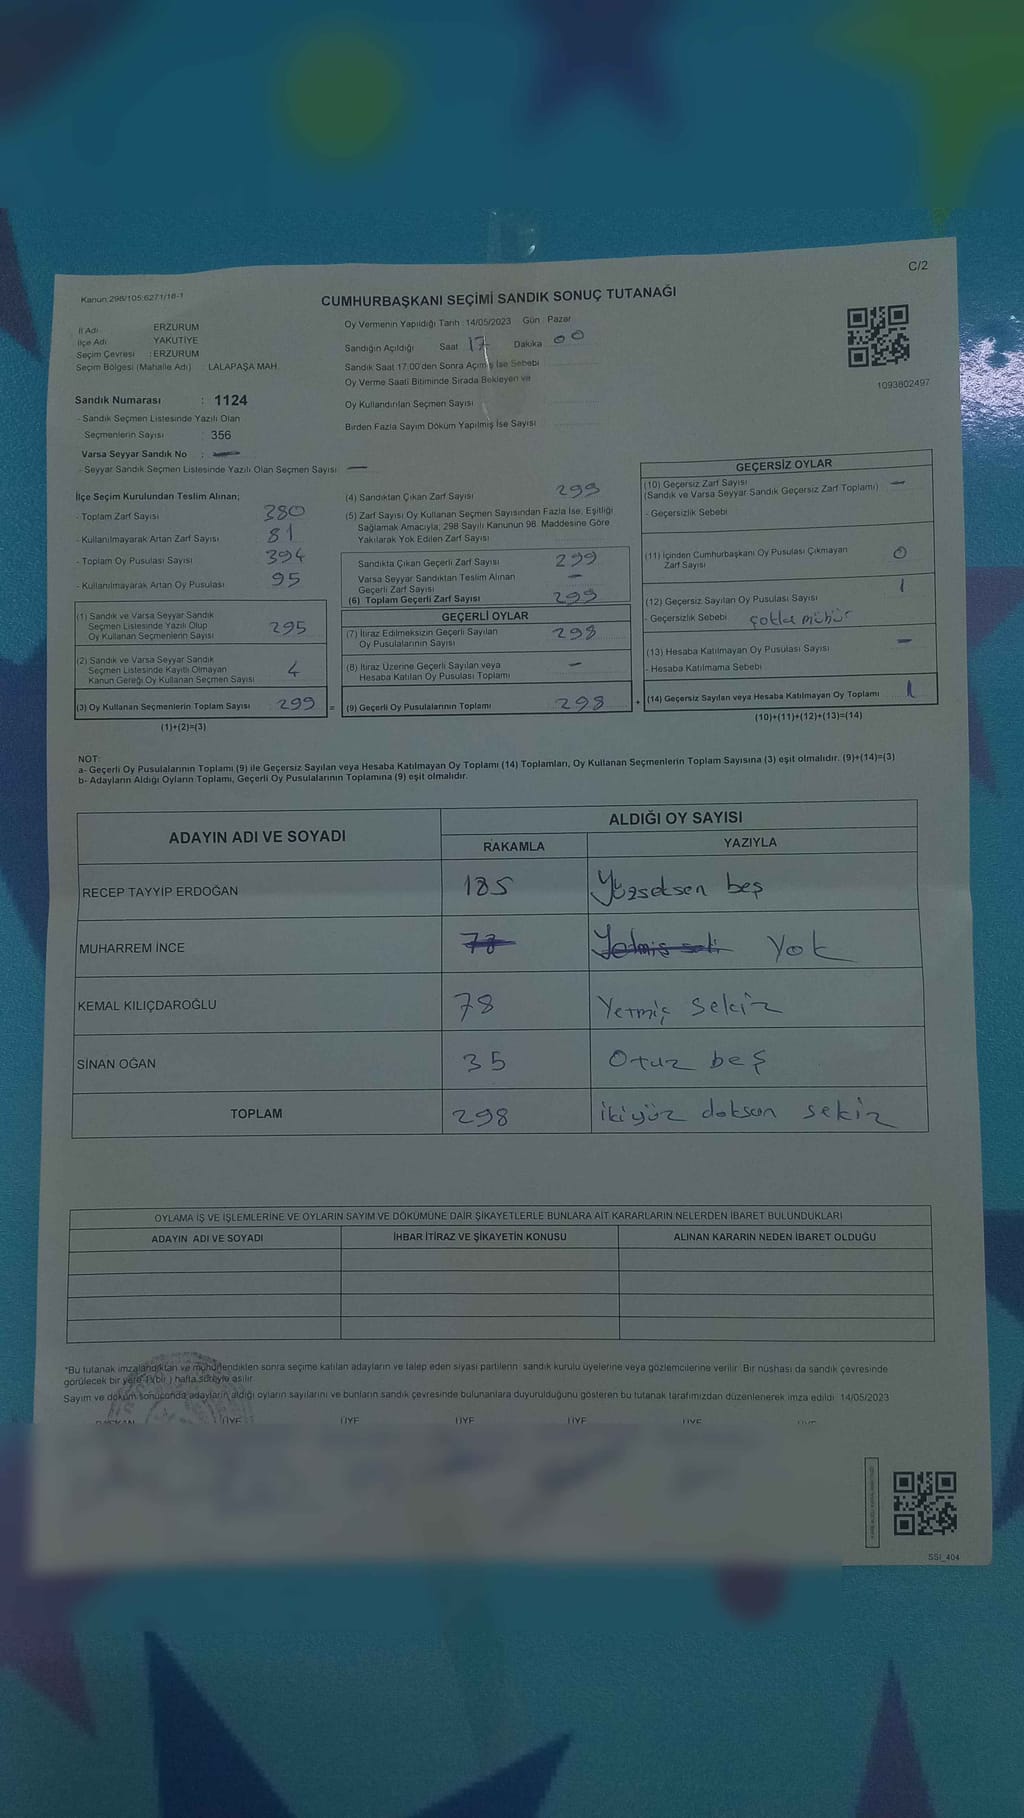 C/2
Kanun 298/105;6271/18-1
CUMHURBAŞKANI SEÇİMİ SANDIK SONUÇ TUTANAĞI
İl Adı : ERZURUM
İlçe Adı : YAKUTİYE
Seçim Çevresi : ERZURUM
Seçim Bölgesi (Mahalle Adı) LALAPAŞA MAH.
Oy Vermenin Yapıldığı Tarih :14/05/2023 Gün : Pazar
Sandığın Açıldığı Saat 17 Dakika 00
Sandık Saat 17:00'den Sonra Açılmış İse Sebebi
Oy Verme Saati Bitiminde Sırada Bekleyen ve
Oy Kullandırılan Seçmen Sayısı
Birden Fazla Sayım Döküm Yapılmış İse Sayısı
1093802497
Sandık Numarası : 1124
- Sandık Seçmen Listesinde Yazılı Olan
Seçmenlerin Sayısı : 356
Varsa Seyyar Sandık No : —
- Seyyar Sandık Seçmen Listesinde Yazılı Olan Seçmen Sayısı —
İlçe Seçim Kurulundan Teslim Alınan;
- Toplam Zarf Sayısı 380
- Kullanılmayarak Artan Zarf Sayısı 81
- Toplam Oy Pusulası Sayısı 394
- Kullanılmayarak Artan Oy Pusulası 95
(1) Sandık ve Varsa Seyyar Sandık
Seçmen Listesinde Yazılı Olup
Oy Kullanan Seçmenlerin Sayısı 295
(2) Sandık ve Varsa Seyyar Sandık
Seçmen Listesinde Kayıtlı Olmayan
Kanun Gereği Oy Kullanan Seçmen Sayısı 4
(3) Oy Kullanan Seçmenlerin Toplam Sayısı 299 =
(1)+(2)=(3)
(4) Sandıktan Çıkan Zarf Sayısı 299
(5) Zarf Sayısı Oy Kullanan Seçmen Sayısından Fazla İse, Eşitliği
Sağlamak Amacıyla, 298 Sayılı Kanunun 98. Maddesine Göre
Yakılarak Yok Edilen Zarf Sayısı
Sandıkta Çıkan Geçerli Zarf Sayısı 299
Varsa Seyyar Sandıktan Teslim Alınan
Geçerli Zarf Sayısı —
(6) Toplam Geçerli Zarf Sayısı 299
GEÇERLİ OYLAR
(7) İtiraz Edilmeksizin Geçerli Sayılan
Oy Pusulalarının Sayısı 298
(8) İtiraz Üzerine Geçerli Sayılan veya
Hesaba Katılan Oy Pusulası Toplamı —
(9) Geçerli Oy Pusulalarının Toplamı 298 +
GEÇERSİZ OYLAR
(10) Geçersiz Zarf Sayısı —
(Sandık ve Varsa Seyyar Sandık Geçersiz Zarf Toplamı)
- Geçersizlik Sebebi
(11) İçinden Cumhurbaşkanı Oy Pusulası Çıkmayan
Zarf Sayısı 0
(12) Geçersiz Sayılan Oy Pusulası Sayısı 1
- Geçersizlik Sebebi çokla mühür
(13) Hesaba Katılmayan Oy Pusulası Sayısı —
- Hesaba Katılmama Sebebi
(14) Geçersiz Sayılan veya Hesaba Katılmayan Oy Toplamı 1
(10)+(11)+(12)+(13)=(14)
NOT:
a- Geçerli Oy Pusulalarının Toplamı (9) ile Geçersiz Sayılan veya Hesaba Katılmayan Oy Toplamı (14) Toplamları, Oy Kullanan Seçmenlerin Toplam Sayısına (3) eşit olmalıdır. (9)+(14)=(3)
b- Adayların Aldığı Oyların Toplamı, Geçerli Oy Pusulalarının Toplamına (9) eşit olmalıdır.
ADAYIN ADI VE SOYADI
ALDIĞI OY SAYISI
RAKAMLA YAZIYLA
RECEP TAYYİP ERDOĞAN 185 Yüzseksen beş
MUHARREM İNCE 78 Yok
KEMAL KILIÇDAROĞLU 78 Yetmiş sekiz
SİNAN OĞAN 35 Otuz beş
TOPLAM 298 ikiyüz doksan sekiz
OYLAMA İŞ VE İŞLEMLERİNE VE OYLARIN SAYIM VE DÖKÜMÜNE DAİR ŞİKAYETLERLE BUNLARA AİT KARARLARIN NELERDEN İBARET BULUNDUKLARI
ADAYIN ADI VE SOYADI İHBAR İTİRAZ VE ŞİKAYETİN KONUSU ALINAN KARARIN NEDEN İBARET OLDUĞU
*Bu tutanak imzalandıktan ve mühürlendikten sonra seçime katılan adayların ve talep eden siyasi partilerin sandık kurulu üyelerine veya gözlemcilerine verilir. Bir nüshası da sandık çevresinde
görülecek bir yere 1 (bir ) hafta süreyle asılır.
Sayım ve döküm sonucunda adayların aldığı oyların sayılarını ve bunların sandık çevresinde bulunanlara duyurulduğunu gösteren bu tutanak tarafımızdan düzenlenerek imza edildi. 14/05/2023
BAŞKAN ÜYE ÜYE ÜYE ÜYE ÜYE ÜYE
SSI_404